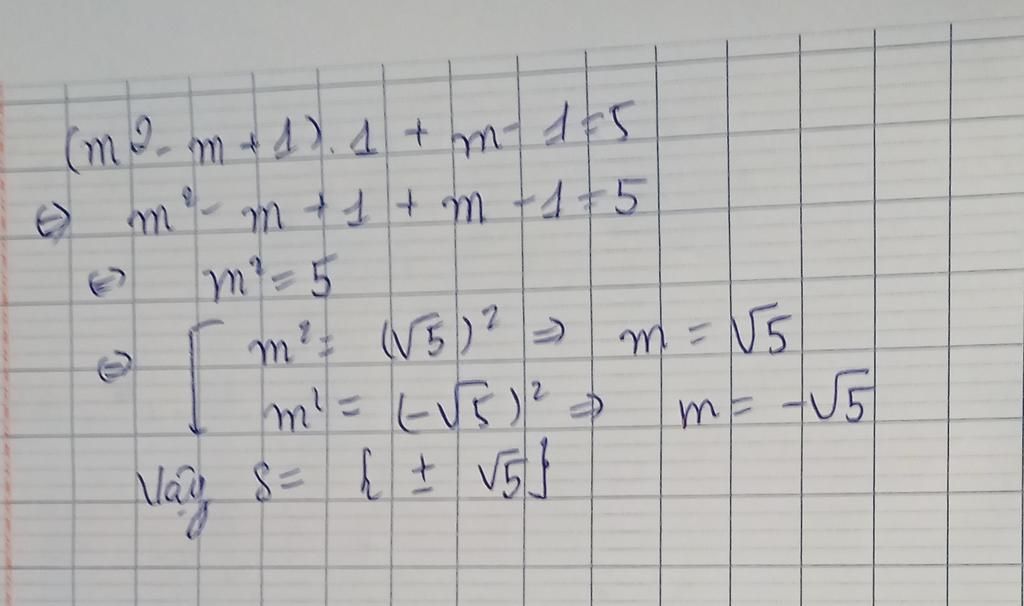 (m² - m + 1). 1 + m - 1 = 5
⇔ m² - m + 1 + m - 1 = 5
⇔ m² = 5
⇔ [ m² = (√5)² ⇒ m = √5
m² = (-√5)² ⇒ m = -√5
Vậy S = { ± √5}